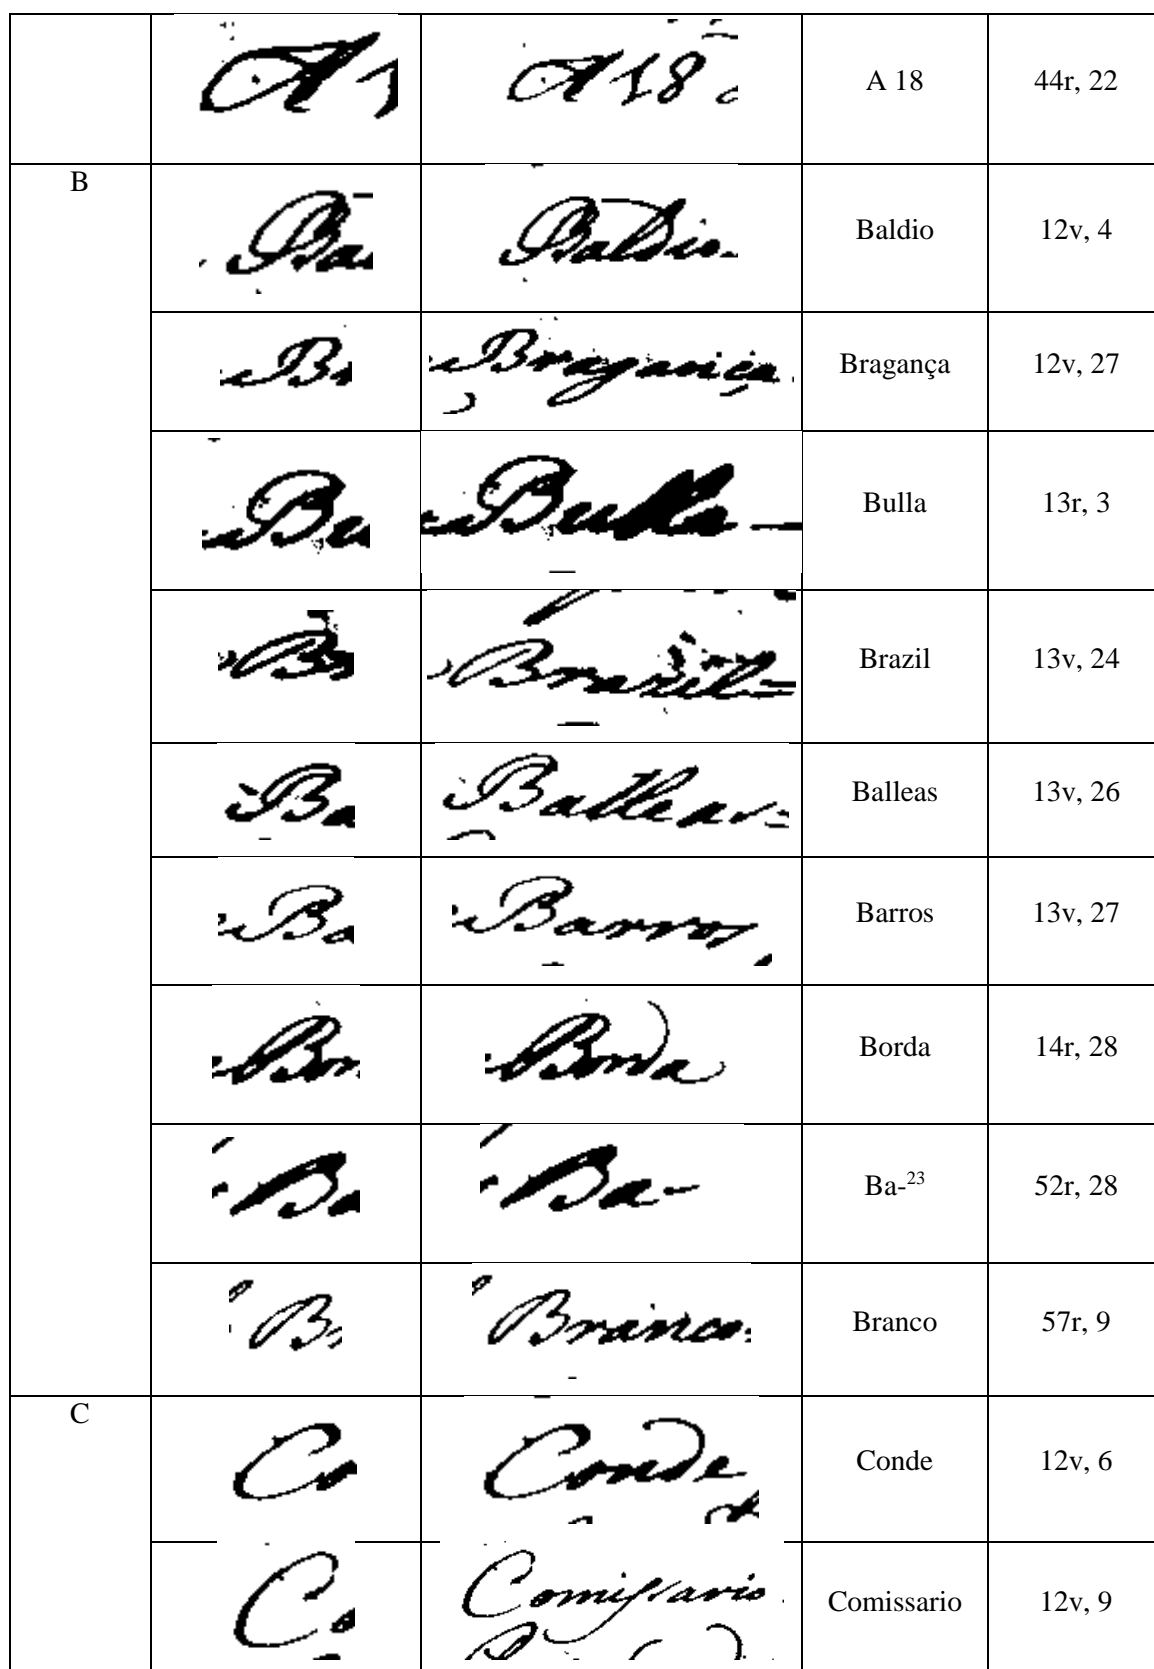 A 1 A 18 A 18 44r, 22
B Ba Baldio Baldio 12v, 4
Br Bragança Bragança 12v, 27
Bu Bulla Bulla 13r, 3
Br Brazil Brazil 13v, 24
Ba Balleas Balleas 13v, 26
Ba Barros Barros 13v, 27
Bor Borda Borda 14r, 28
Ba Ba- Ba-23 52r, 28
Br Branco Branco 57r, 9
C Co Conde Conde 12v, 6
Co Comissario Comissario 12v, 9